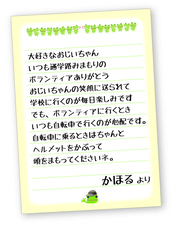 大好きなおじいちゃん
いつも通学路みまもりの
ボランティアありがとう
おじいちゃんの笑顔に送られて
学校に行くのが毎日楽しみです
でも、ボランティアに行くとき
いつも自転車で行くのが心配です。
自転車に乗るときはちゃんと
ヘルメットをかぶって
頭をまもってくださいネ。
かほる より